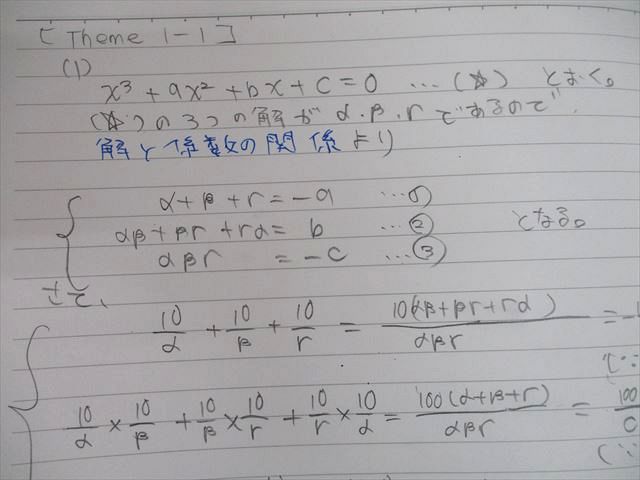 [Theme 1-1]
(1)
x³ + ax² + bx + c = 0 …(☆) とおく。
(☆)の3つの解がα・β・rであるので、
解と係数の関係より
α+β+r = -a …①
αβ+βr+rα = b …② となる。
αβr = -c …③
さて、
10/α + 10/β + 10/r = 10(αβ+βr+rα)/αβr = -
(∵
10/α × 10/β + 10/β × 10/r + 10/r × 10/α = 100(α+β+r)/αβr = 100/c
(∵